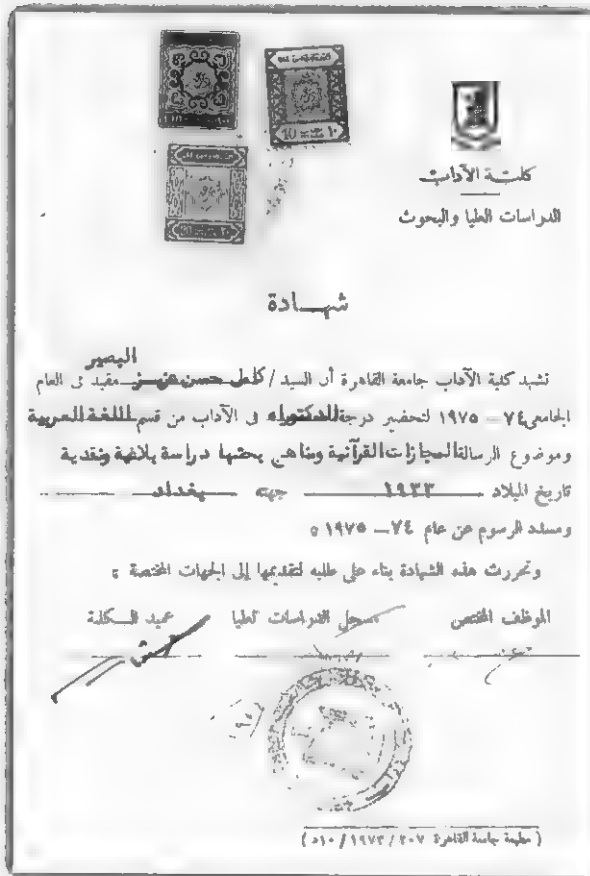 كلية الآداب
الدراسات العليا والبحوث
شهــادة
البصير
تشهد كلية الآداب جامعة القاهرة أن السيد / كامل حسن عزيز مقيد فى العام
الجامعى ٧٤ – ١٩٧٥ لتحضير درجة الدكتوراه فى الآداب من قسم اللغة العربية
وموضوع الرسالة المجازات القرآنية ومناهج بحثها دراسة بلاغية ونقدية
تاريخ الميلاد ١٩٣٣ جهته بغداد
ومسدد الرسوم عن عام ٧٤ – ١٩٧٥ ٥
وتحررت هذه الشهادة بناء على طلبه لتقديمها إلى الجهات المختصة ؛
الموظف المختص مسجل الدراسات العليا عميد الــكلية
( مطبعة جامعة القاهرة ٢٠٧ / ١٩٧٣ / ١٠د )